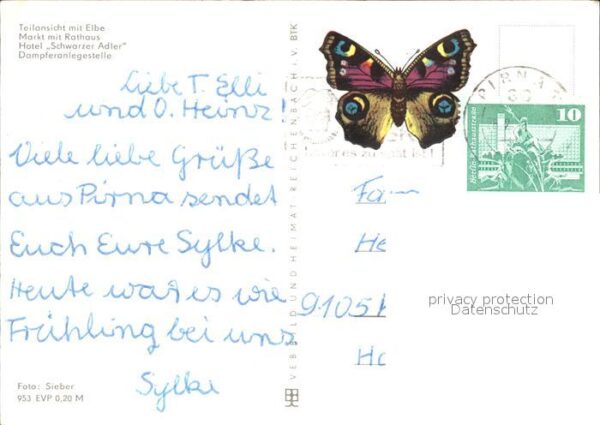 Teilansicht mit Elbe
Markt mit Rathaus
Hotel „Schwarzer Adler"
Dampferanlegestelle
Liebe T. Elli
und O. Heinz!
Viele liebe Grüße
aus Pirna sendet
Euch Eure Sylke.
Heute war es wie
Frühling bei uns
Sylke
Foto: Sieber
953 EVP 0,20 M
VEB BILD UND HEIMAT REICHENBACH I. V. BTK
PIRNA
10
Berlin, Rathausstraße
Fam
He
9105
Ha
privacy protection
Datenschutz